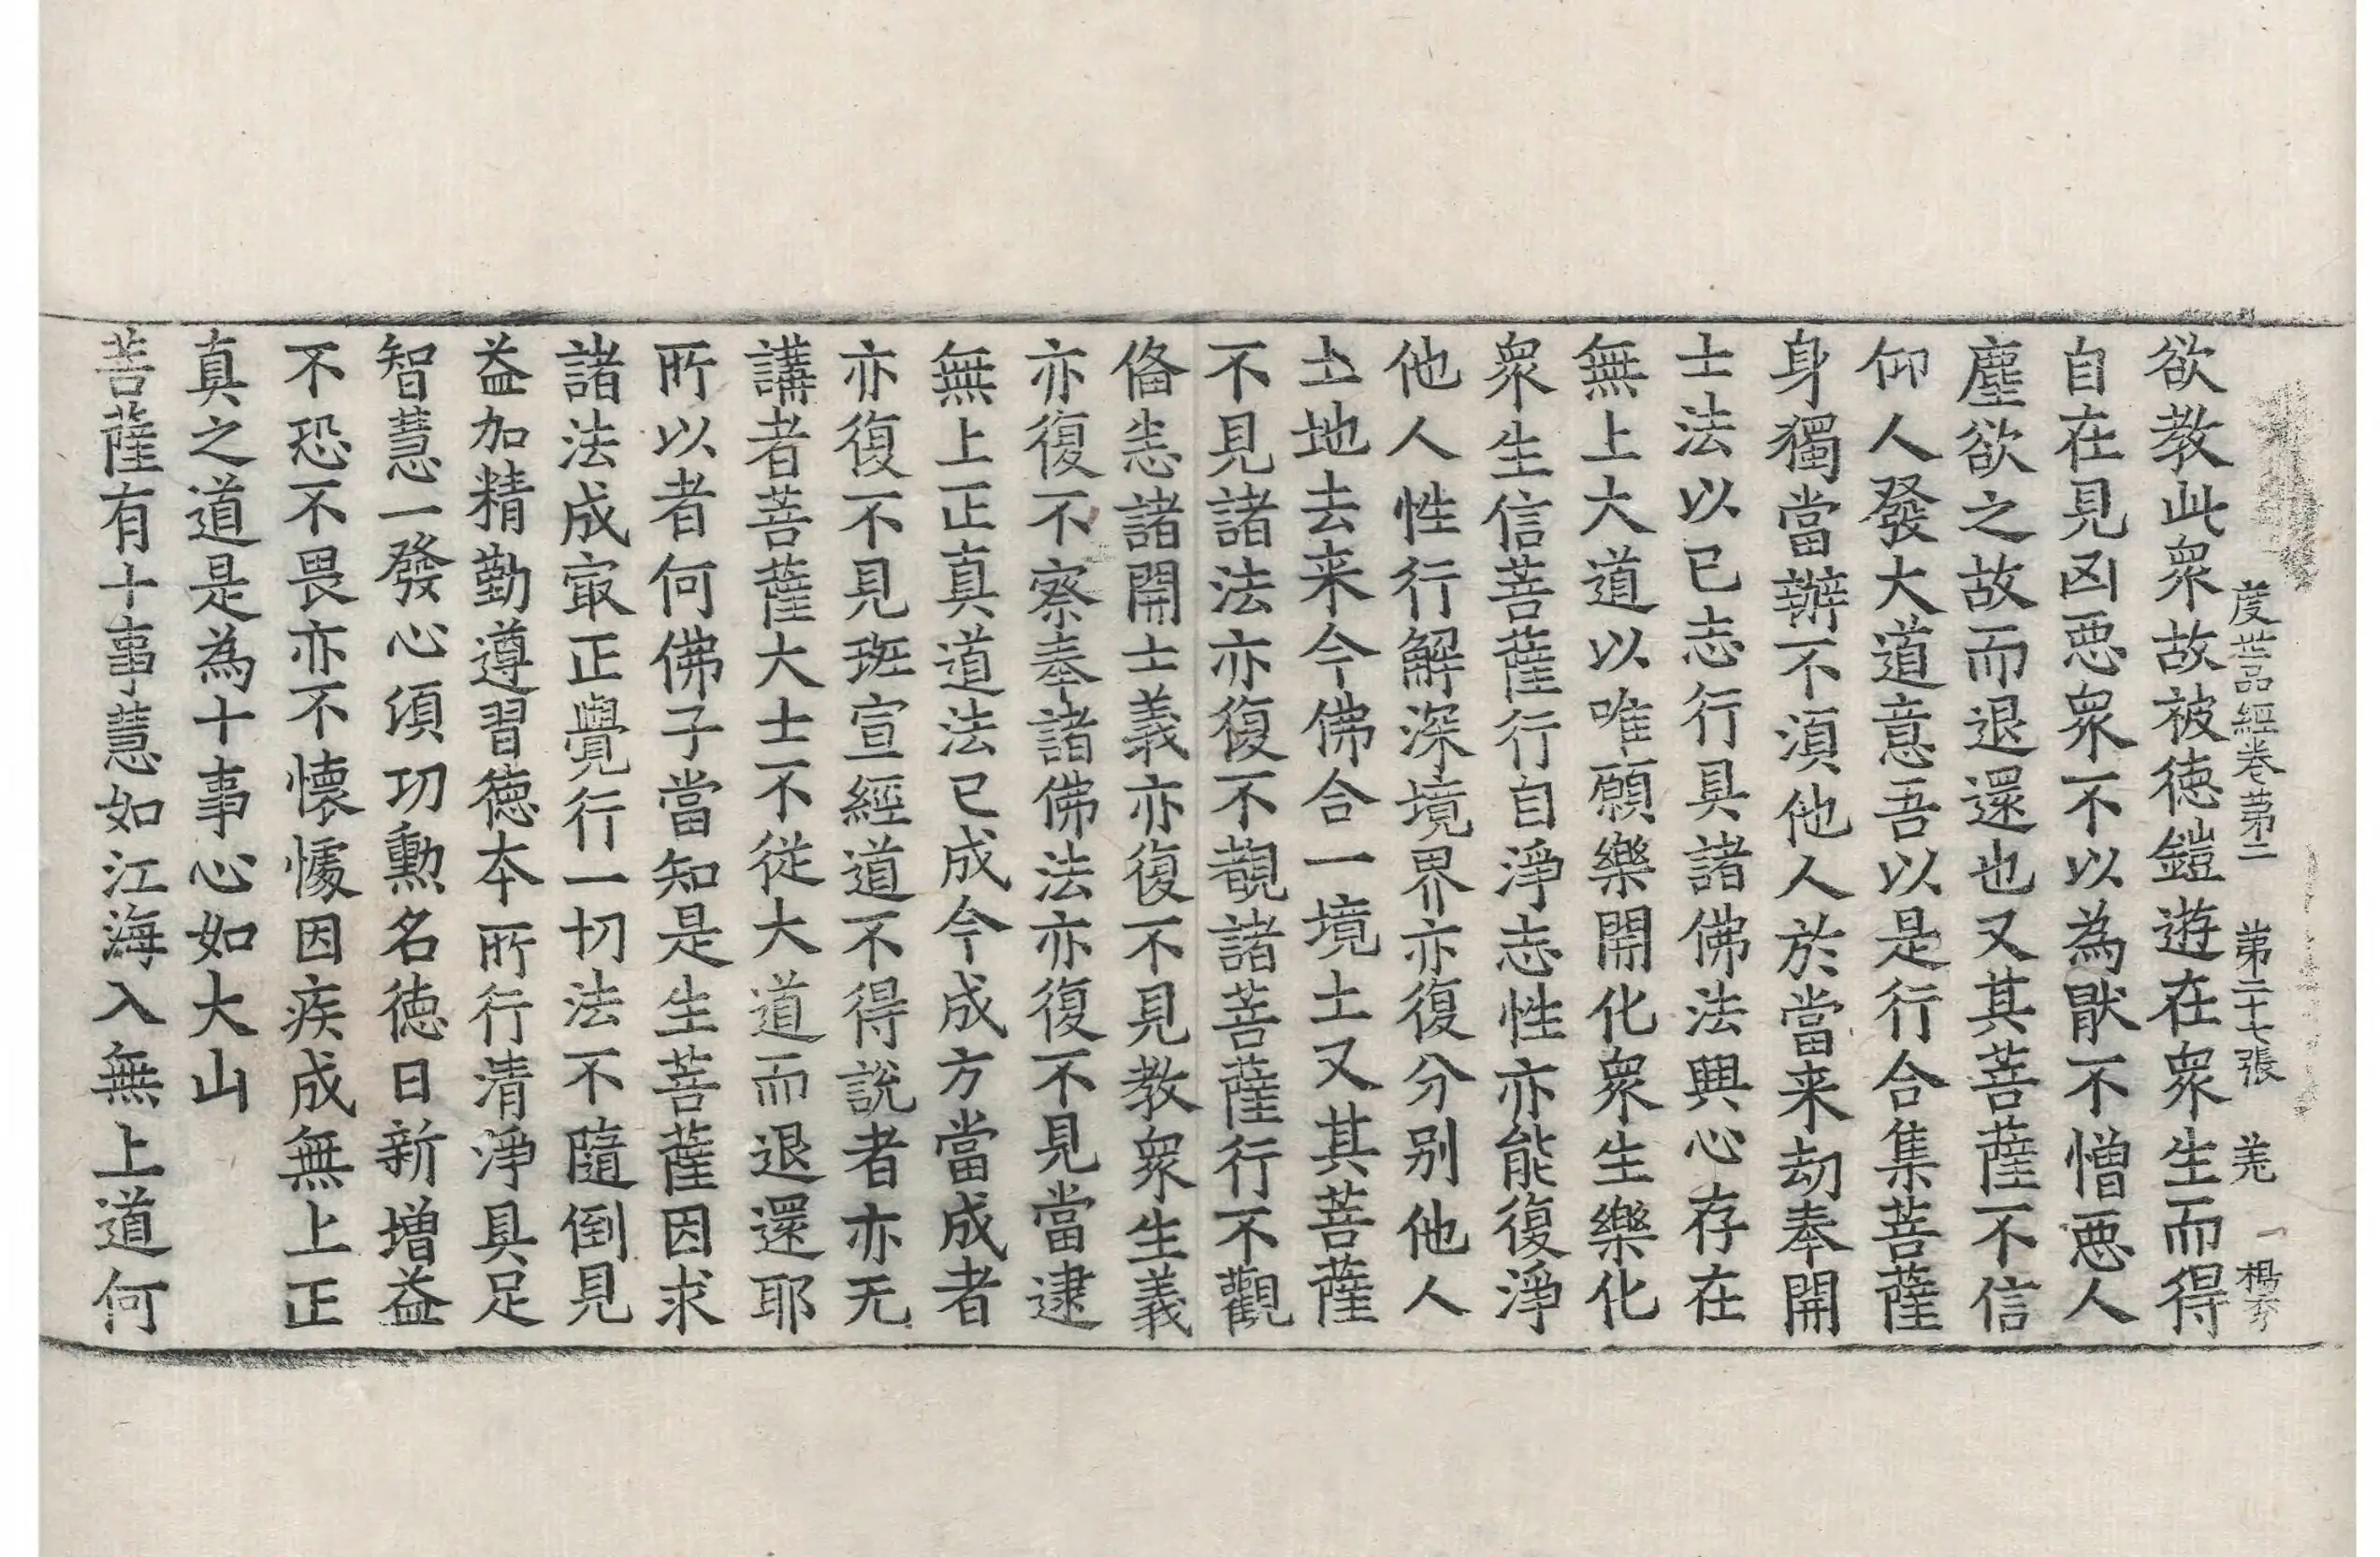 度世品經卷第二　第二十七張　羌
欲教此衆故被徳鎧遊在衆生而得
自在見凶惡衆不以為猒不憎惡人
塵欲之故而退還也又其菩薩不信
仰人發大道意吾以是行合集菩薩
身獨當辦不湏他人於當来劫奉開
士法以已志行具諸佛法興心存在
無上大道以唯願樂開化衆生樂化
衆生信菩薩行自淨志性亦能復淨
他人性行解深境界亦復分别他人
土地去来今佛合一境土又其菩薩
不見諸法亦復不覩諸菩薩行不觀
俻恙諸開士義亦復不見教衆生義
亦復不察奉諸佛法亦復不見當逮
無上正真道法已成今成方當成者
亦復不見班宣經道不得說者亦无
講者菩薩大士不從大道而退還耶
所以者何佛子當知是生菩薩因求
諸法成㝡正覺行一切法不隨倒見
益加精勤遵習徳本所行清淨具足
智慧一發心湏功勲名徳日新增益
不恐不畏亦不懐懅因疾成無上正
真之道是為十事心如大山
菩薩有十事慧如江海入無上道何